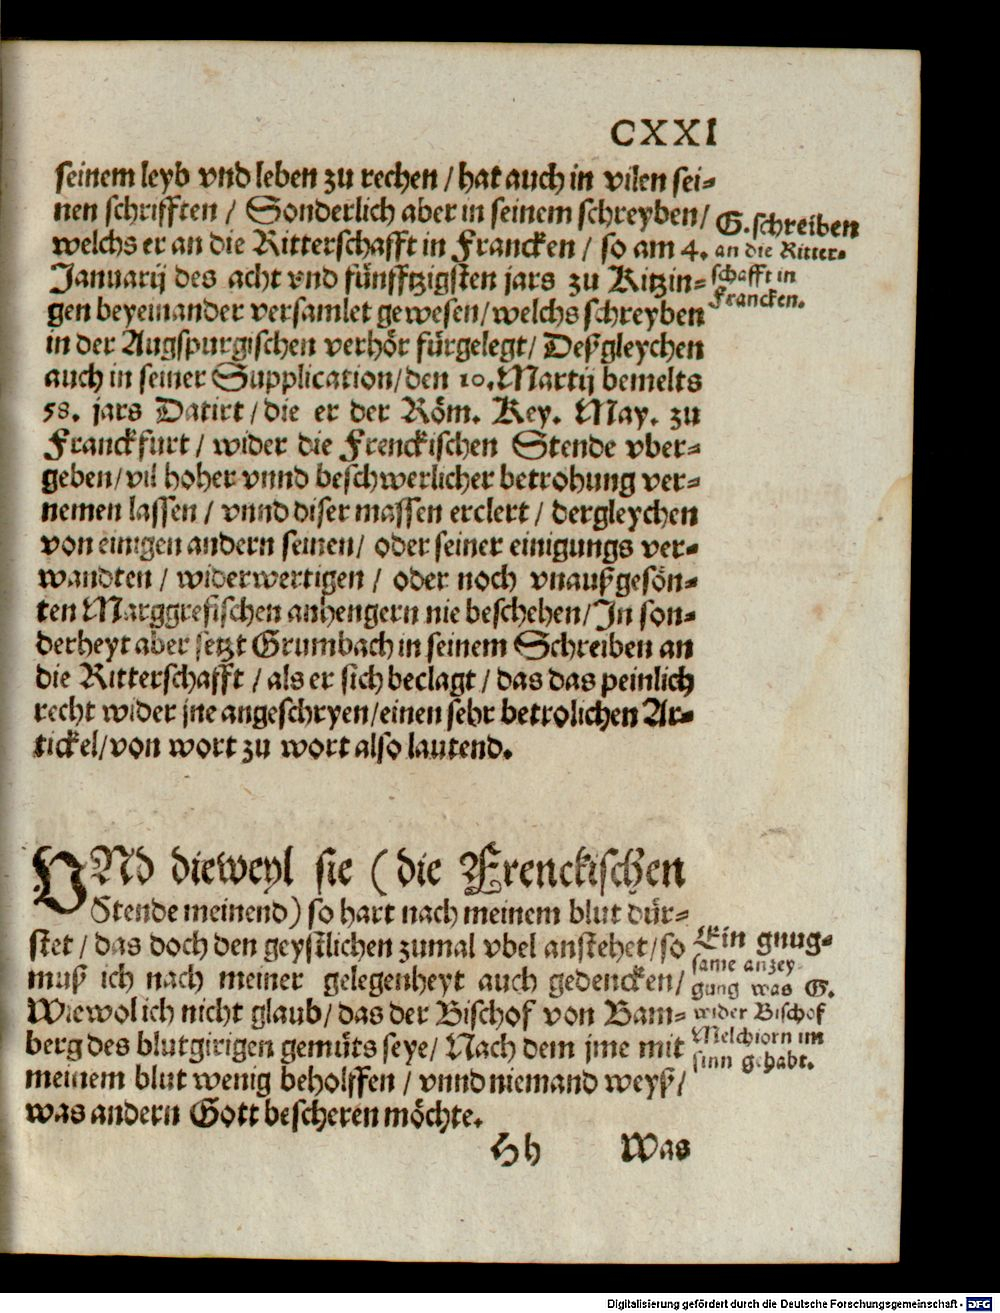 CXXI
seinem leyb vnd leben zu rechen / hat auch in vilen sei-
nen schrifften / Sonderlich aber in seinem schreyben /
welchs er an die Ritterschafft in Francken / so am 4.
Januarij des acht vnd fünfftzigsten jars zu Kitzin-
gen beyeinander versamlet gewesen / welchs schreyben
in der Augspurgischen verhör fürgelegt / Deßgleychen
auch in seiner Supplication / den 10. Martij bemelts
58. jars Datirt / die er der Röm. Key. May. zu
Franckfurt / wider die Frenckischen Stende vber-
geben / vil hoher vnnd beschwerlicher betrohung ver-
nemen lassen / vnnd diser massen erclert / dergleychen
von einigen andern seinen / oder seiner einigungs ver-
wandten / widerwertigen / oder noch vnaußgesön-
ten Marggrefischen anhengern nie beschehen / In son-
derheyt aber setzt Grumbach in seinem Schreiben an
die Ritterschafft / als er sich beclagt / das das peinlich
recht wider jne angeschryen / einen sehr betrolichen Ar-
tickel / von wort zu wort also lautend.
G. schreiben
an die Ritter-
schafft in
Francken.
VNd dieweyl sie (die Frenckischen
Stende meinend) so hart nach meinem blut dür-
stet / das doch den geystlichen zumal vbel anstehet / so
muß ich nach meiner gelegenheyt auch gedencken /
Wiewol ich nicht glaub / das der Bischof von Bam-
berg des blutgirigen gemüts seye / Nach dem jme mit
meinem blut wenig beholffen / vnnd niemand weyß /
was andern Gott bescheren möchte.
Ein gnug-
same anzey-
gung was G.
wider Bischof
Melchiorn im
sinn gehabt.
Hh Was
Digitalisierung gefördert durch die Deutsche Forschungsgemeinschaft - DFG